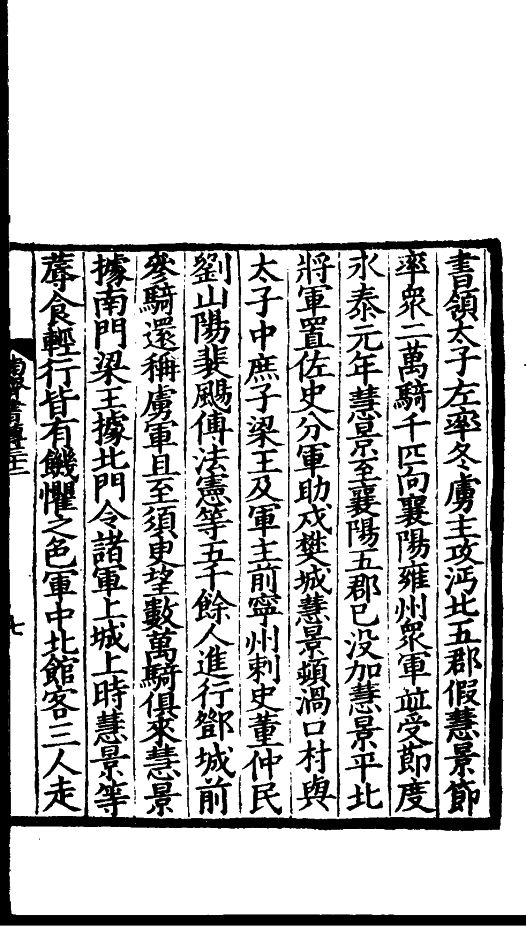 書領太子左率冬虜主攻沔北五郡假慧景節
率衆二萬騎千匹向襄陽雍州衆軍並受節度
永泰元年慧景至襄陽五郡已没加慧景平北
將軍置佐史分軍助戍樊城慧景頓渦口村與
太子中庶子梁王及軍主前寧州刺史董仲民
劉山陽裴颺傅法憲等五千餘人進行鄧城前
參騎還稱虜軍且至須吏望數萬騎俱來慧景
據南門梁王據北門令諸軍上城上時慧景等
蓐食輕行皆有饑懼之色軍中北館客三人走
七